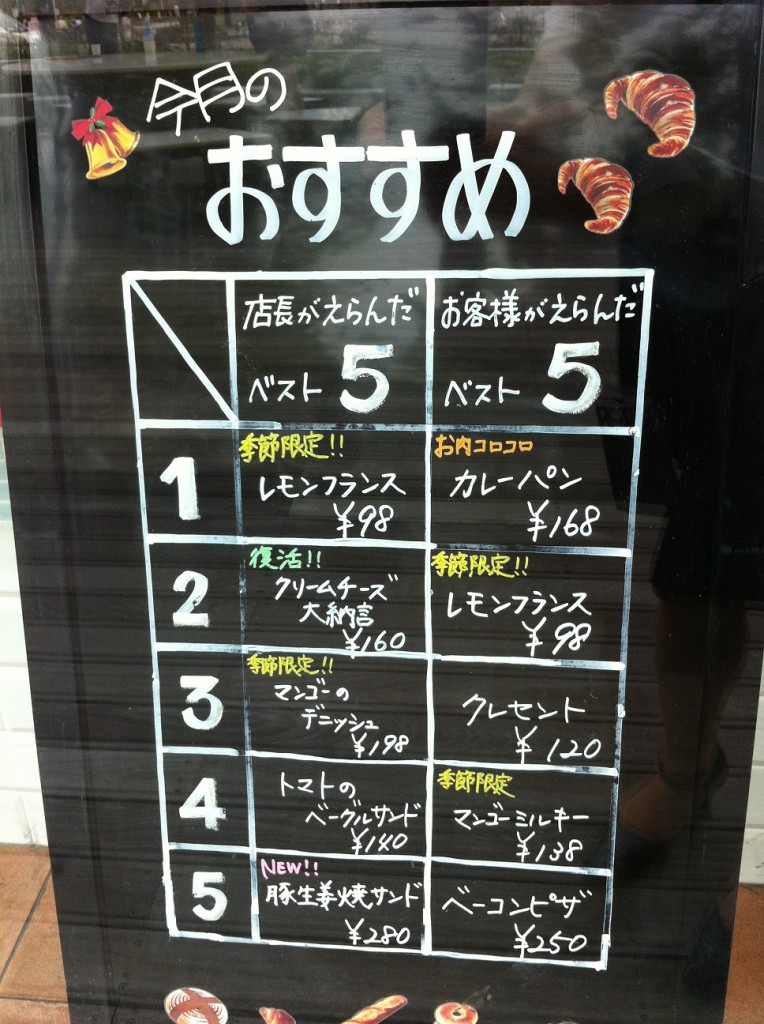 今月の
おすすめ
店長がえらんだ
ベスト 5
お客様がえらんだ
ベスト 5
1
季節限定!!
レモンフランス
¥98
お肉コロコロ
カレーパン
¥168
2
復活!!
クリームチーズ
大納言
¥160
季節限定!!
レモンフランス
¥98
3
季節限定!!
マンゴーの
デニッシュ
¥198
クレセント
¥120
4
トマトの
ベーグルサンド
¥140
季節限定
マンゴーミルキー
¥138
5
NEW!!
豚生姜焼サンド
¥280
ベーコンピザ
¥250